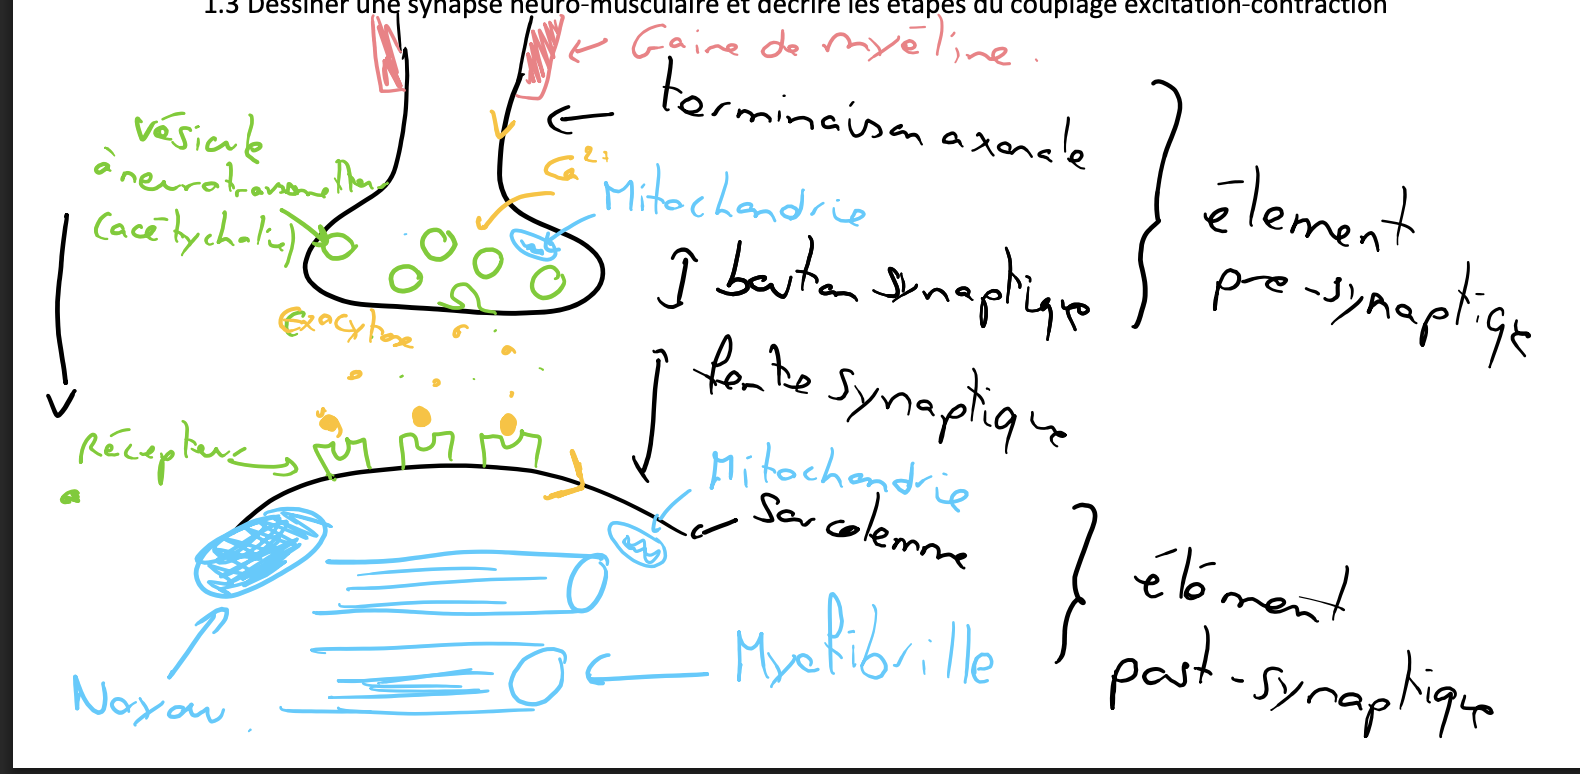 1.3 Dessiner une synapse neuro-musculaire et décrire les étapes du couplage excitation-contraction
Gaine de myéline.
terminaison axonale
vésicule
à neurotransmetteur
(acétylcholine)
Ca²⁺
Mitochondrie
élement
pre-synaptique
bouton synaptique
Exocytose
fente synaptique
Récepteur
Mitochondrie
Sarcolemme
élément
post-synaptique
Myofibrille
Noyau